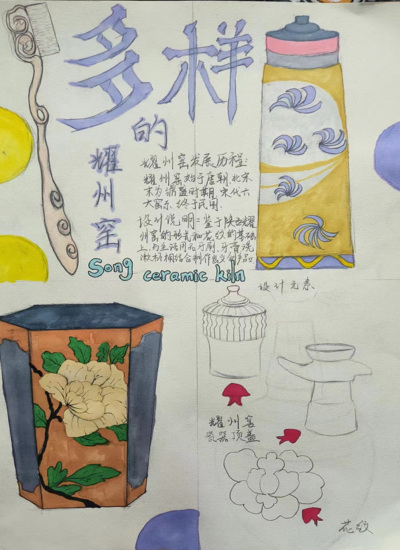 多样
的
耀州窑
耀州窑发展历程:
耀州窑始于唐朝,北宋
末为鼎盛时期,宋代六
大窑系,终于民国
设计说明:鉴于陕西耀
州窑的形态和花纹的基础
上,与生活用品牙刷、牙膏、洗
漱杯相结合制作文创产品
Song ceramic kiln
设计元素
耀州窑
瓷器顶盖
花纹